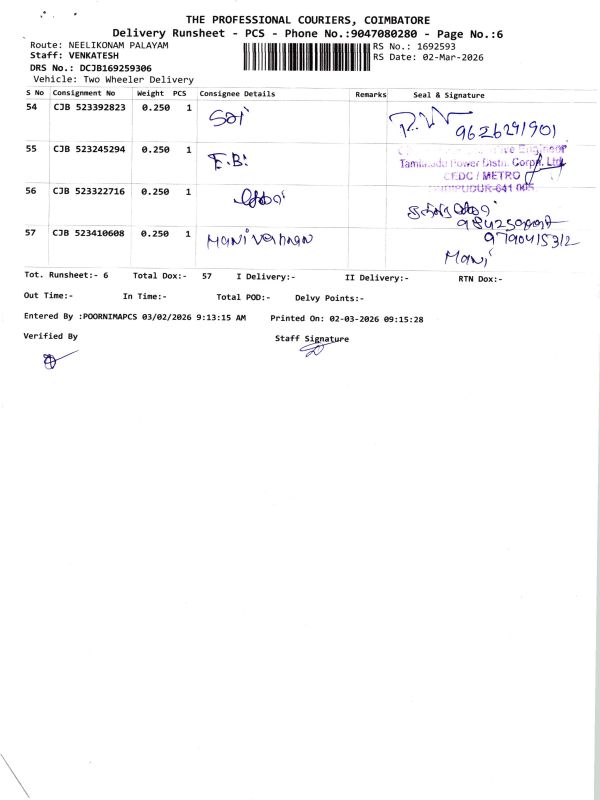 THE PROFESSIONAL COURIERS, COIMBATORE
Delivery Runsheet - PCS - Phone No.:9047080280 - Page No.:6
Route: NEELIKONAM PALAYAM
RS No.: 1692593
Staff: VENKATESH
RS Date: 02-Mar-2026
DRS No.: DCJB169259306
Vehicle: Two Wheeler Delivery
S No Consignment No Weight PCS Consignee Details Remarks Seal & Signature
54 CJB 523392823 0.250 1 Sai
9626291901
55 CJB 523245294 0.250 1 E.B.
Power Distn. Corpn. Ltd
CEDC / METRO
56 CJB 523322716 0.250 1
57 CJB 523410608 0.250 1 Manivannan
9790415312
Mani
Tot. Runsheet:- 6 Total Dox:- 57 I Delivery:- II Delivery:- RTN Dox:-
Out Time:- In Time:- Total POD:- Delvy Points:-
Entered By :POORNIMAPCS 03/02/2026 9:13:15 AM Printed On: 02-03-2026 09:15:28
Verified By Staff Signature